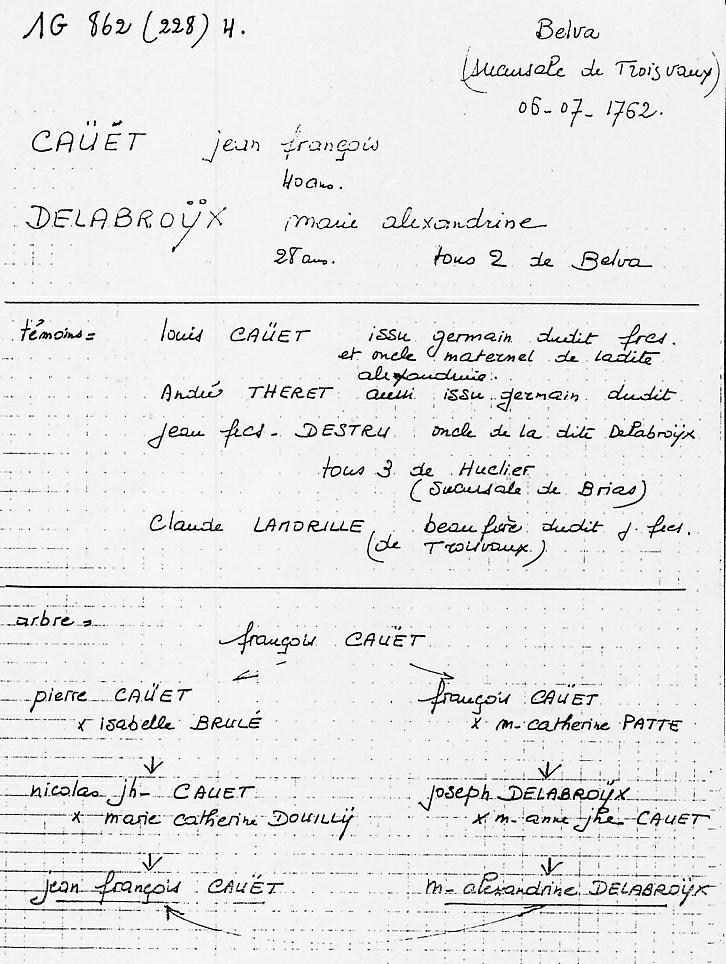 1G 862 (228) 4.
Belva
(sucursale de Troisvaux)
06-07-1762.
CAÜËT jean françois
40 ans.
DELABROŸX marie alexandrine
28 ans. tous 2 de Belva
témoins = louis CAÜET issu germain dudit frcs.
et oncle maternel de ladite
alexandrine.
André THERET aussi issu germain dudit
jean frcs- DESTRU oncle de la dite Delabroÿx
tous 3 de Huclier
(sucursale de Brias)
Claude LAMORILLE beau frère dudit j. frcs.
(de Troisvaux)
arbre =
françois CAUËT
pierre CAÜET françois CAÜET
x isabelle BRULÉ x m-catherine PATTE
nicolas jh- CAUET joseph DELABROŸX
x marie catherine DOUILLŸ x m-anne jhe CAUET
jean françois CAUËT m-alexandrine DELABROŸX